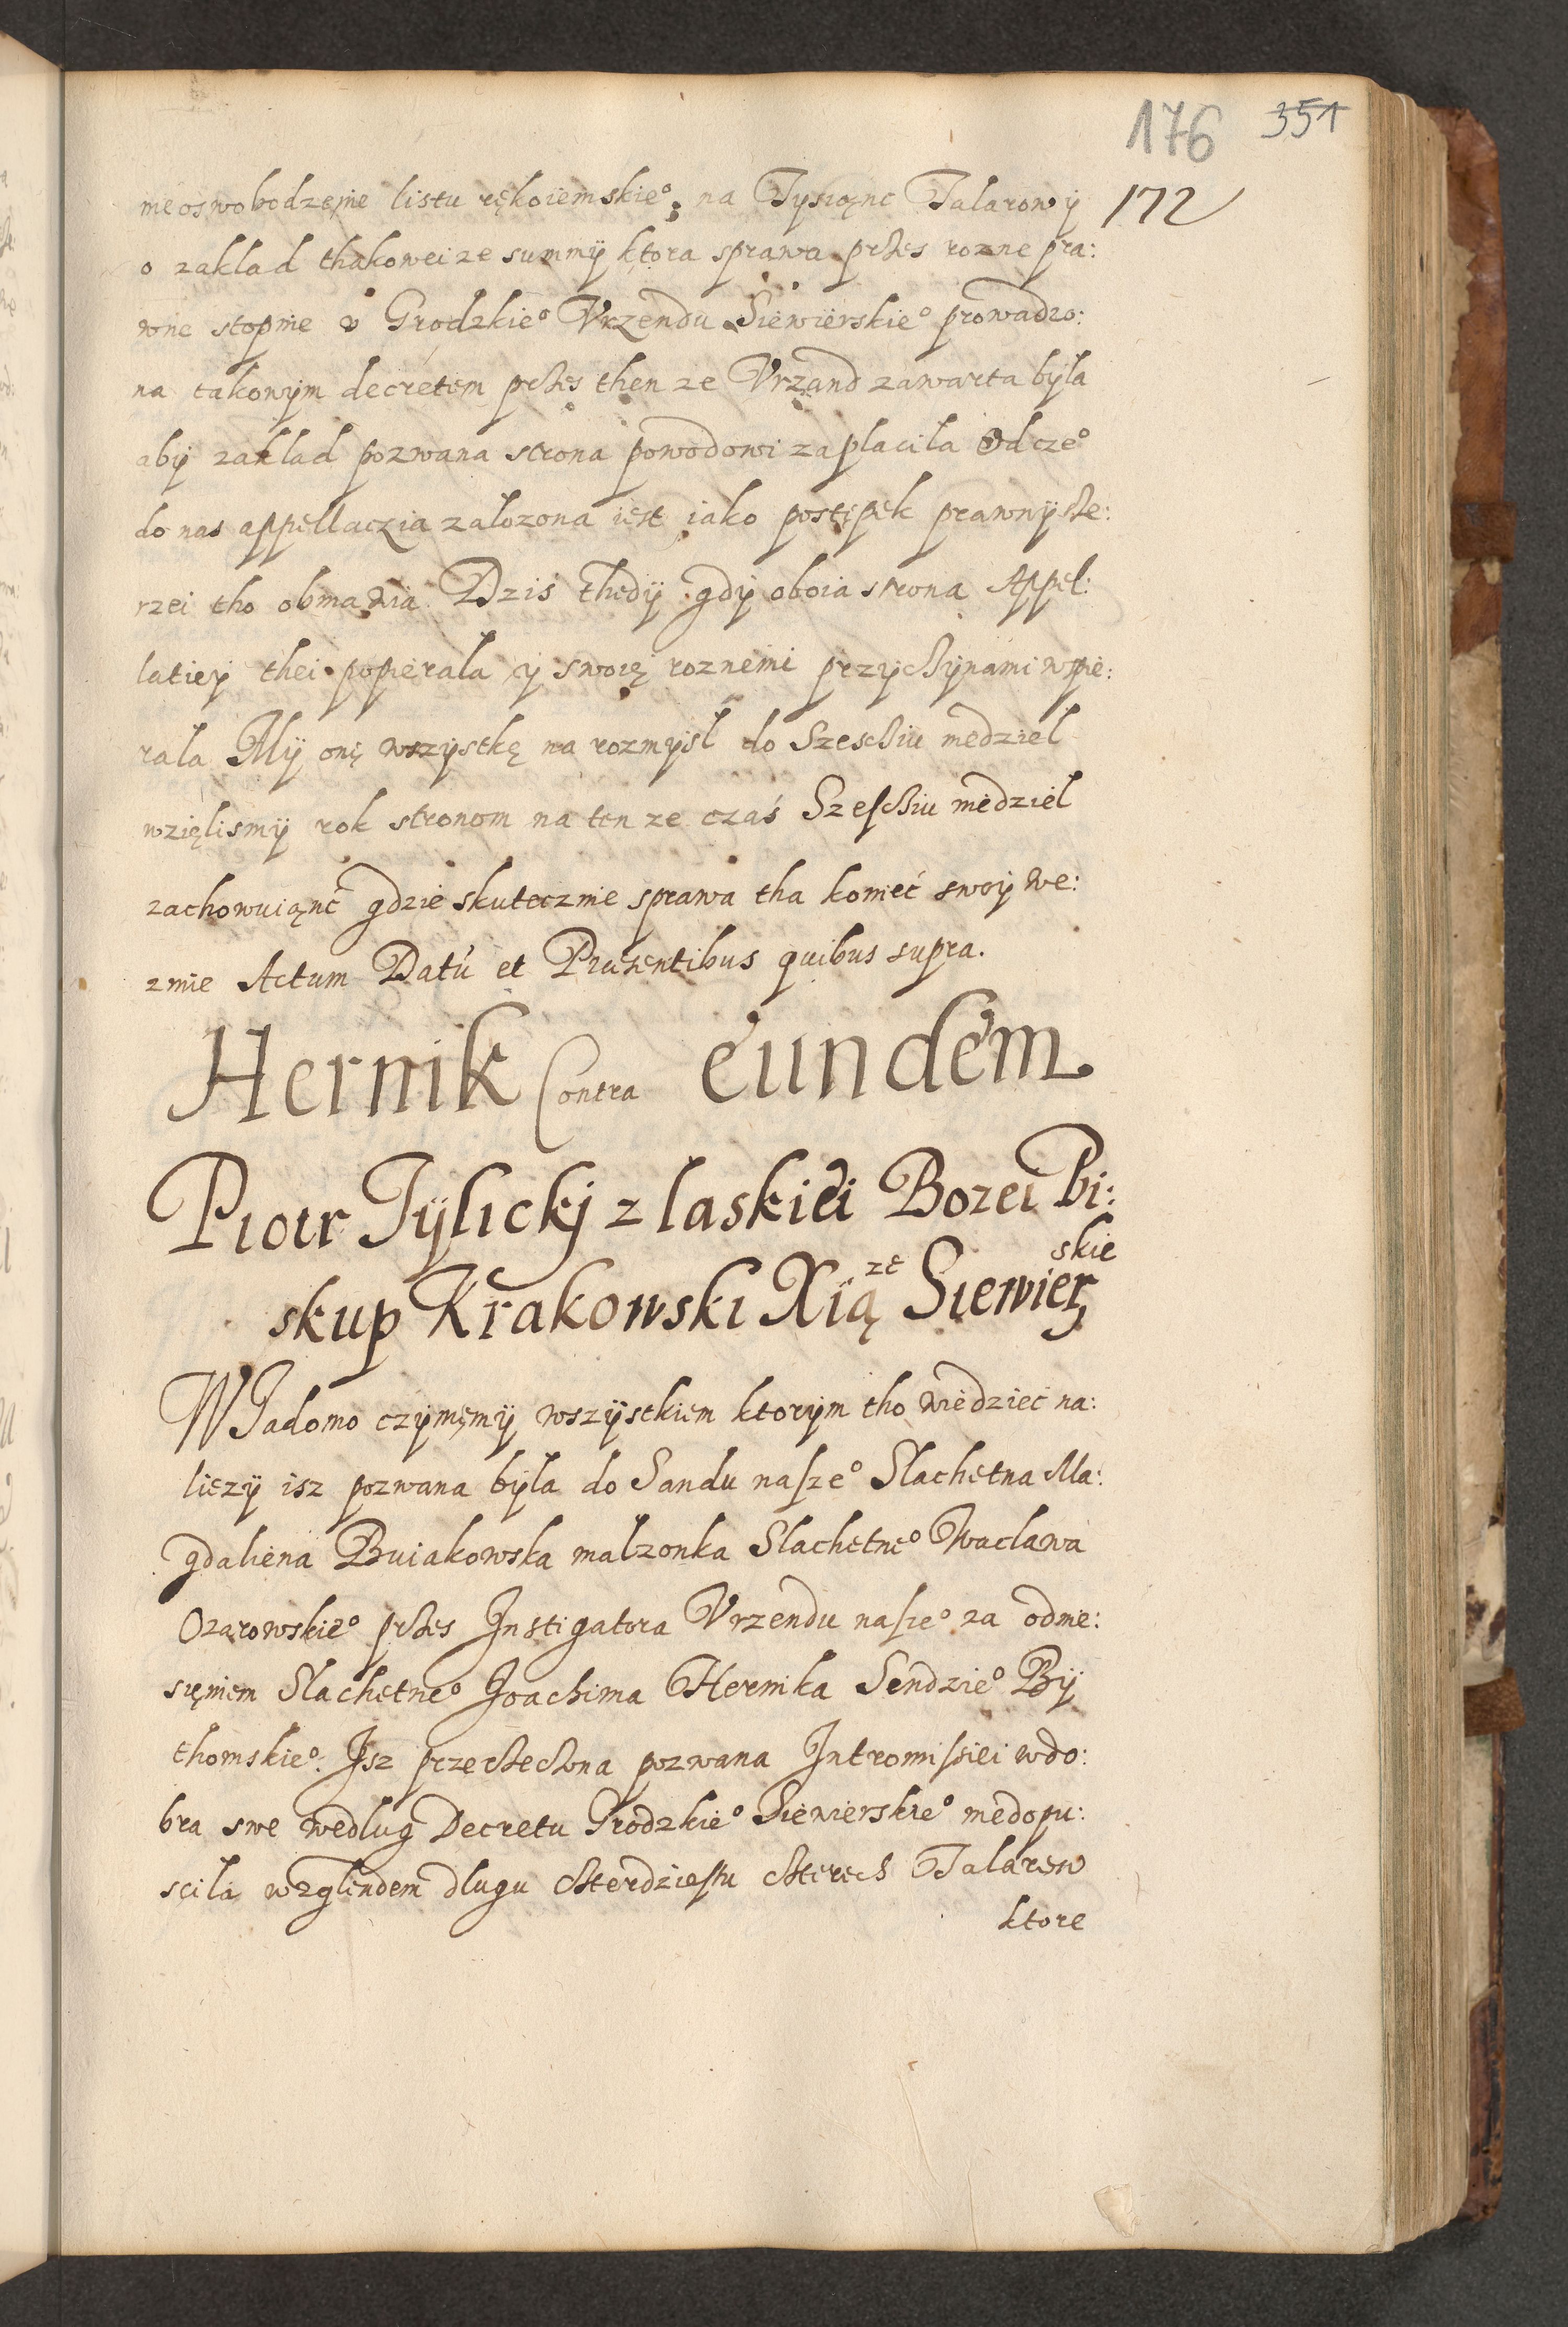 176 351
172
nieoswobodzenie listu rękoiemskie° na Tysiąnc Talarow y
o zaklad thakoweize summÿ ktora sprawa przes rozne pra:
wne stopnie v Grodzkie° Vrzendu Siewierskie° prowadzo:
na takowÿm decretem przes then ze Vrzand zawarta bÿla
abÿ zaklad pozwana strona powodowi zaplacila Odcze°
do nas appellaczia zalozona iest iako postępek prawnÿ sze:
rzei tho obmawia Dzis thedÿ gdÿ oboia strona Appel:
latieÿ thei popierala ÿ swoię roznemi przÿczÿnami wspie:
rala Mÿ onę wszÿstkę na rozmÿsl do Szescziu niedziel
wzięlismÿ rok stronom na ten ze czas Szescziu niedziel
zachowuiąnc gdzie skutecznie sprawa tha koniec swoÿ we:
zmie Actum Datū et Præsentibus quibus supra.
Hernik Contra eundem
Piotr Tÿlickj z laskiei Bozei Bi:
skup Krakowski Xiąze Siewierskie
WIadomo czÿniemÿ wszÿstkiem ktorÿm tho wiedziec na:
liezÿ isz pozwana bÿla do Sandu nasze° Slachetna Ma:
gdaliena Buiakowska malzonka Slachetne° Waclawa
Ozarowskie° przes Instigatora Vrzendu nasze° za odnie:
sięniem Slachetne° Joachima Hernika Sendzie° Bÿ
thomskie°. Isz przerzeczona pozwana Intromissiei wdo:
bra swe wedlug Decretu Grodzkie° Siewierskie° niedopu:
scila wzglendem dlugu czterdziestu czterech Talarow
ktore